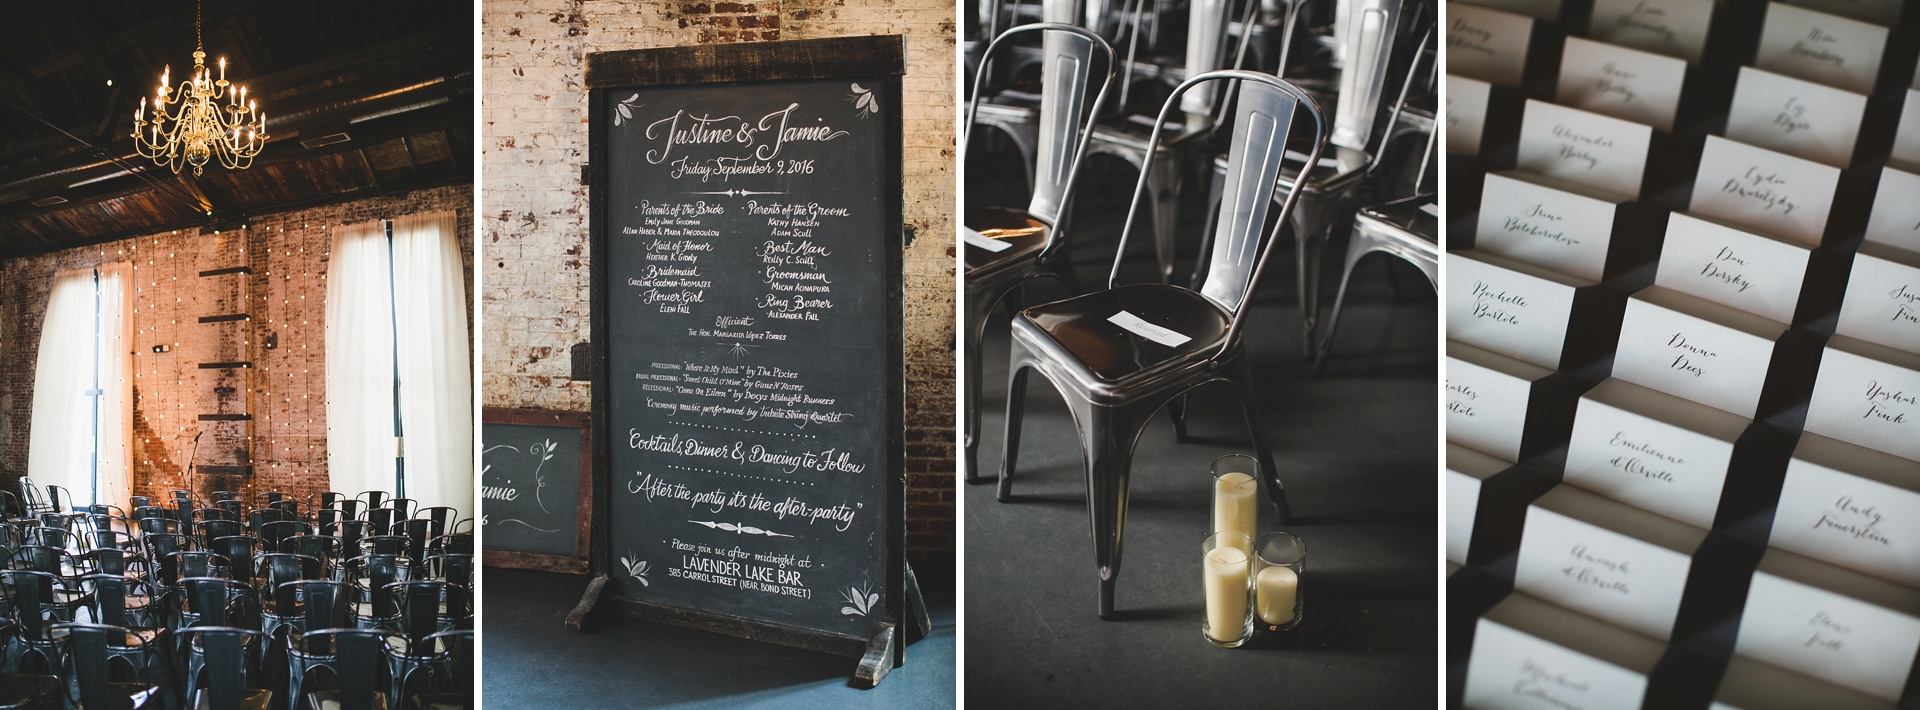 Justine & Jamie
Friday September 9, 2016
Parents of the Bride
Emily Jane Goodman
Allan Haber & Maria Theodoulou
Maid of Honor
Heather K. Gronly
Bridemaid
Caroline Goodman-Thomases
Flower Girl
Eleni Fall
Parents of the Groom
Kathy Hansen
Adam Scull
Best Man
Reilly C. Scull
Groomsman
Micah Acinapura
Ring Bearer
Alexander Fall
Efficient
The Hon. Margarita López Torres
Processional: "Where Is My Mind" by The Pixies
Bridal Processional: "Sweet Child O'Mine" by Guns N' Roses
Recessional: "Come On Eileen" by Dexys Midnight Runners
Ceremony music performed by Tribute String Quartet
Cocktails, Dinner & Dancing to Follow
"After the party it's the after-party"
Please join us after midnight at
LAVENDER LAKE BAR
383 CARROL STREET (NEAR BOND STREET)
amie
6
Reserved
Liz
Dyer
Alexander
Bailey
Lydia
Dworetzky
Irina
Beloborodova
Dan
Dorsky
Rochelle
Bartolo
Donna
Dees
Emilienne
d'Orville
Andy
Feuerstein
Funk